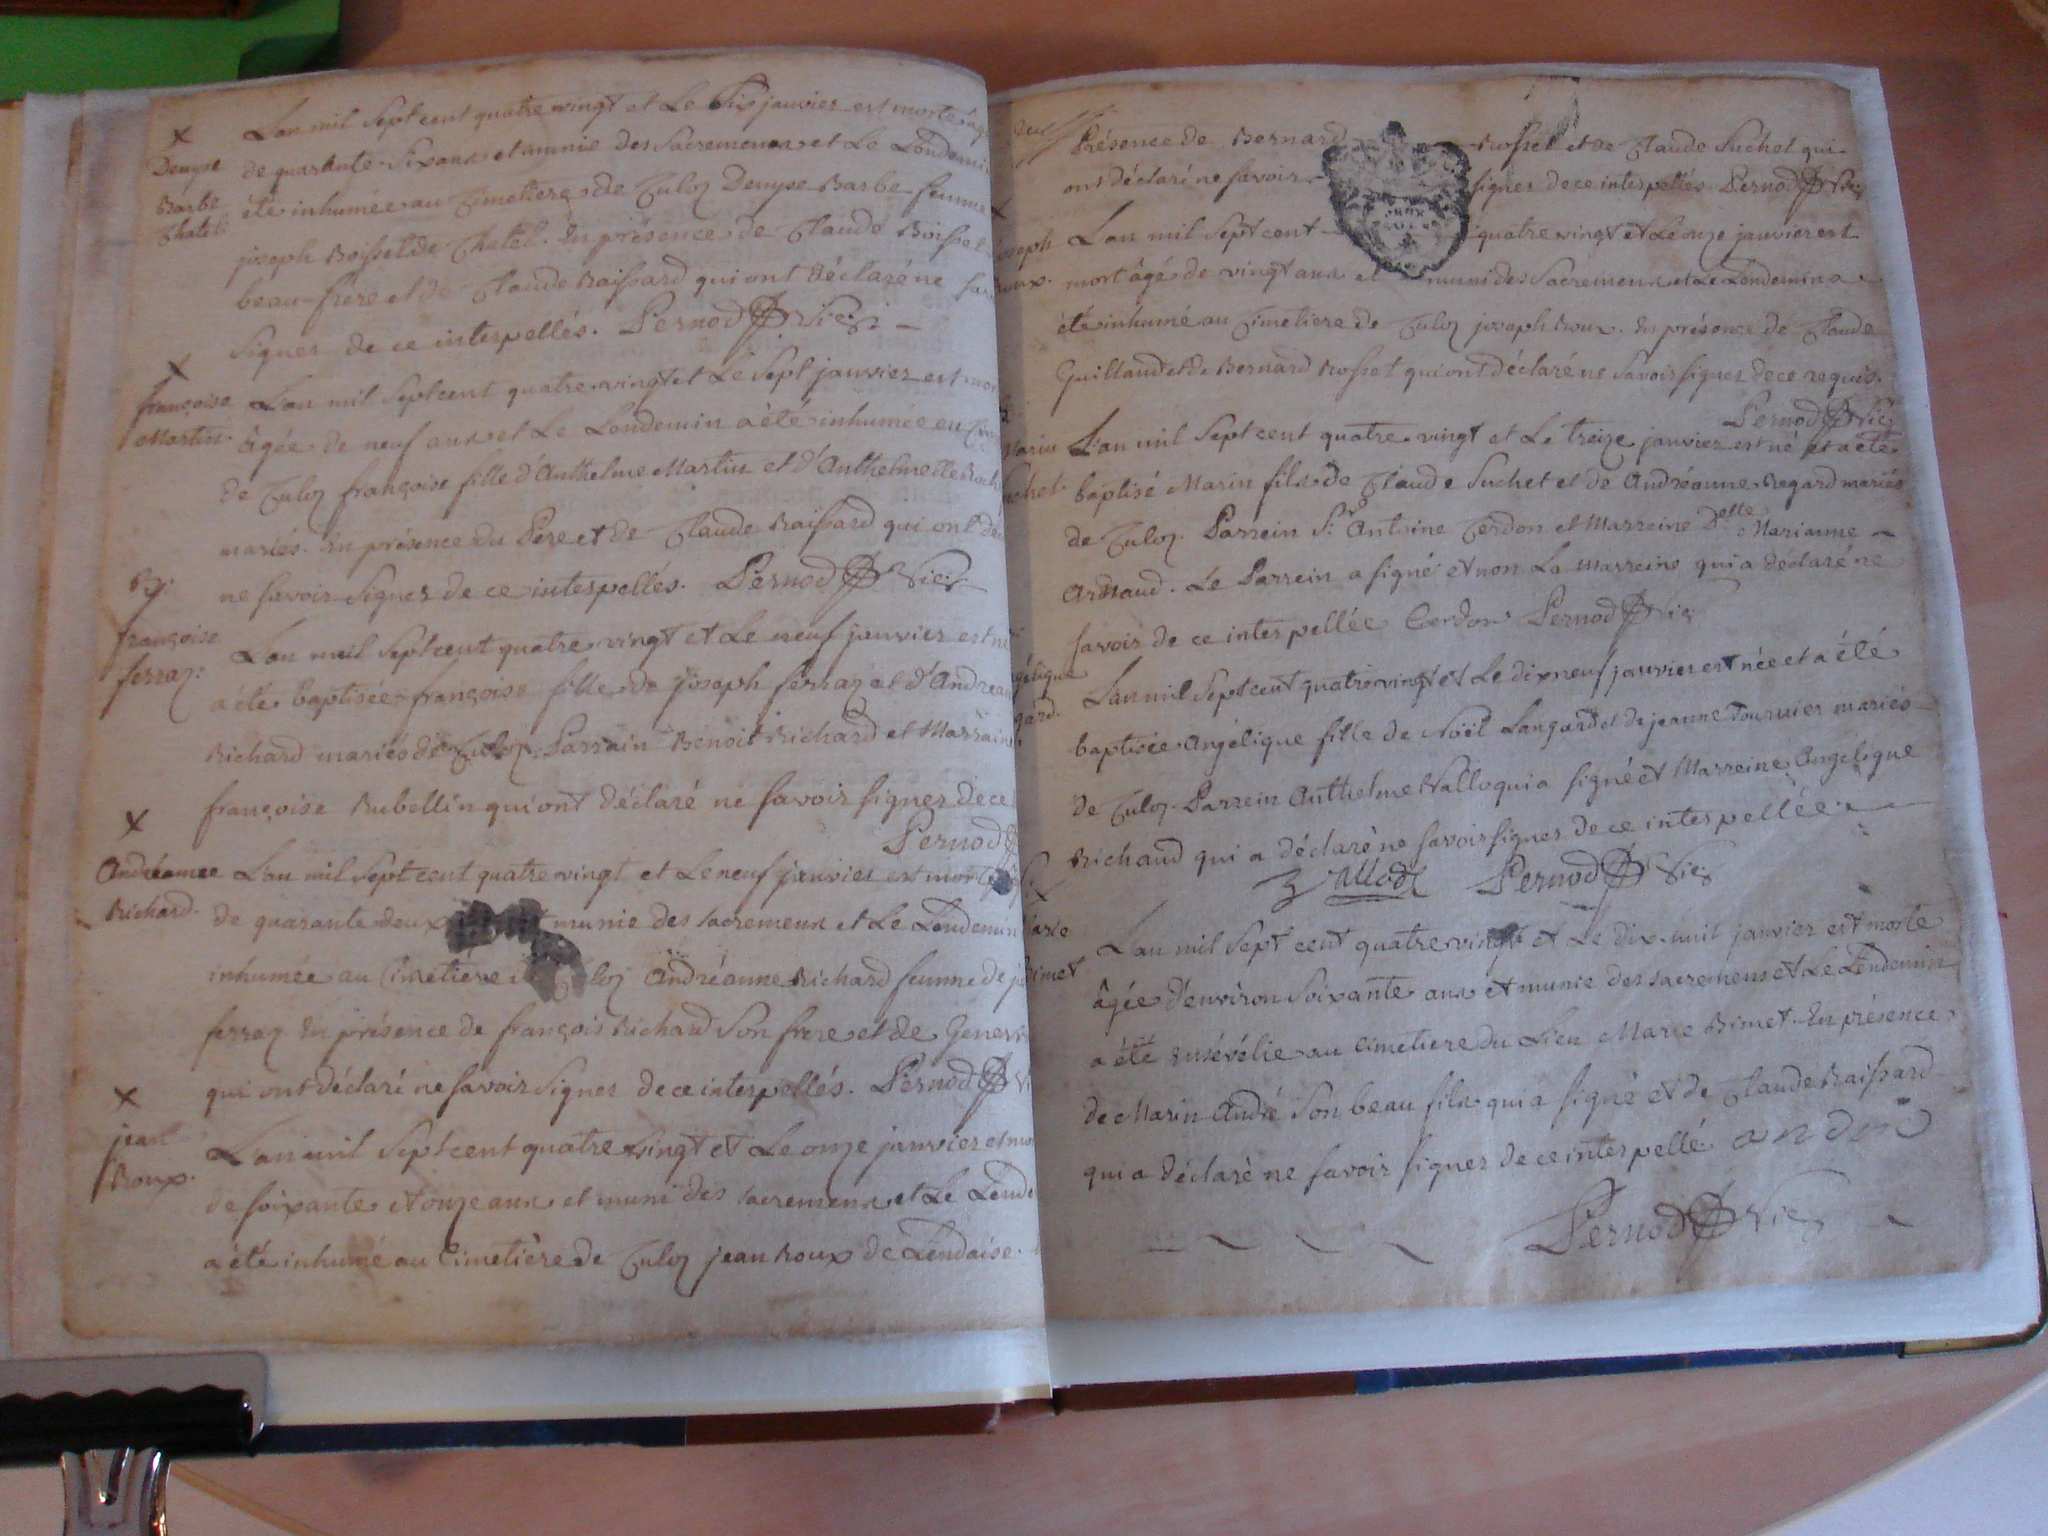 X
Denyse
Barbe
Chatel
L'an mil sept cent quatre vingt et le six janvier est morte âg
de quarante-six ans et munie des Sacremens et le Lendemin
été inhumée au Cimetiere de Culoz Denyse Barbe femme
joseph Boisset de Chatel. En présence de Claude Boisset
beau-frere et de Claude Raissard qui ont déclaré ne sav
signer de ce interpellés. Pernod Vic:
X
françoise
Martin.
L'an mil sept cent quatre vingt et le sept janvier est mor
âgée de neuf ans et le Lendemin a été inhumée au Cim
de Culoz françoise fille d'Anthelme Martin et d'Anthelmette Roch
mariés. En présence du Pere et de Claude Raissard qui ont dé
ne savoir signer de ce interpellés. Pernod Vic:
B.
françoise
ferraz:
L'an mil sept cent quatre vingt et le neuf janvier est né
a été baptisée françoise fille de joseph ferraz et d'Andréan
Richard mariés de Culoz. Parrain Benoit Richard et Marraine
françoise Rubellin qui ont déclaré ne savoir signer de ce
Pernod
X
Andréanne
Richard.
L'an mil sept cent quatre vingt et le neuf janvier est morte âg
de quarante deux munie des sacremens et le Lendemin
inhumée au Cimetière loz Andréanne Richard femme de j
ferraz En présence de françois Richard son frere et de Genev
qui ont déclaré ne savoir signer de ce interpellés. Pernod Vi
X
jean
Roux.
L'an mil sept cent quatre vingt et le onze janvier est mo
de soixante et onze ans et muni des sacremens et le Lende
a été inhumé au Cimetière de Culoz jean Roux de Landaise.
Présence de Bernard Rosset et de Claude Suchet qui
ont déclaré ne savoir signer de ce interpellés Pernod Vic:
X
joseph
Roux.
L'an mil sept cent quatre vingt et le onze janvier est
mort âgé de vingt ans et muni des Sacremens et le Lendemin a
été inhumé au Cimetiere de Culoz joseph Roux. En présence de Claude
Guillaud et de Bernard Rosset qui ont déclaré ne savoir signer de ce requis.
Pernod Vic:
Marin
uchet.
L'an mil sept cent quatre vingt et le treize janvier est né et a été
baptisé Marin fils de Claude Suchet et de Andréanne Regard mariés
de Culoz. Parrein Sr. Antoine Cerdon et Marreine Delle Marianne
Arnaud. Le Parrein a signé et non la marreine qui a déclaré ne
savoir de ce interpellée Cerdon Pernod Vic:
gélique
gard.
L'an mil sept cent quatre vingt et le dix neuf janvier est née et a été
baptisée Angélique fille de Noël Langard et de jeanne fournier mariés
de Culoz. Parrein Anthelme Vallod qui a signé et Marreine Angélique
Richard qui a déclaré ne savoir signer de ce interpellée.
Vallod Pernod Vic:
X
arie
imet
L'an mil sept cent quatre vingt et le dix-huit janvier est morte
âgée d'environ soixante ans et munie des sacremens et le Lendemin
a été ensévélie au Cimetiere du Lieu Marie Bimet. En présence
de Marin André son beau fils qui a signé et de Claude Raissard
qui a déclaré ne savoir signer de ce interpellé andré
Pernod Vic: